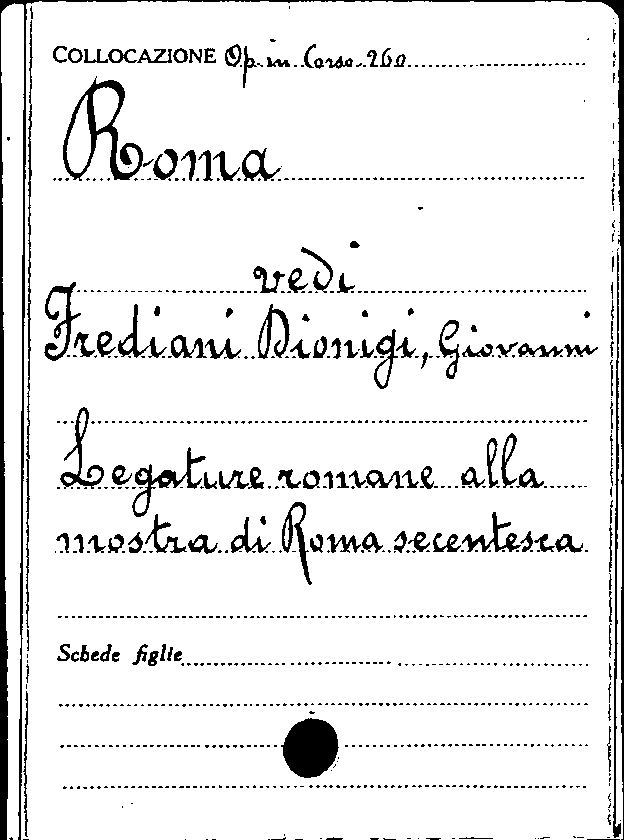 COLLOCAZIONE Op. in Corso 260
Roma
vedi
Frediani Dionigi, Giovanni
Legature romane alla
mostra di Roma secentesca
Schede figlie